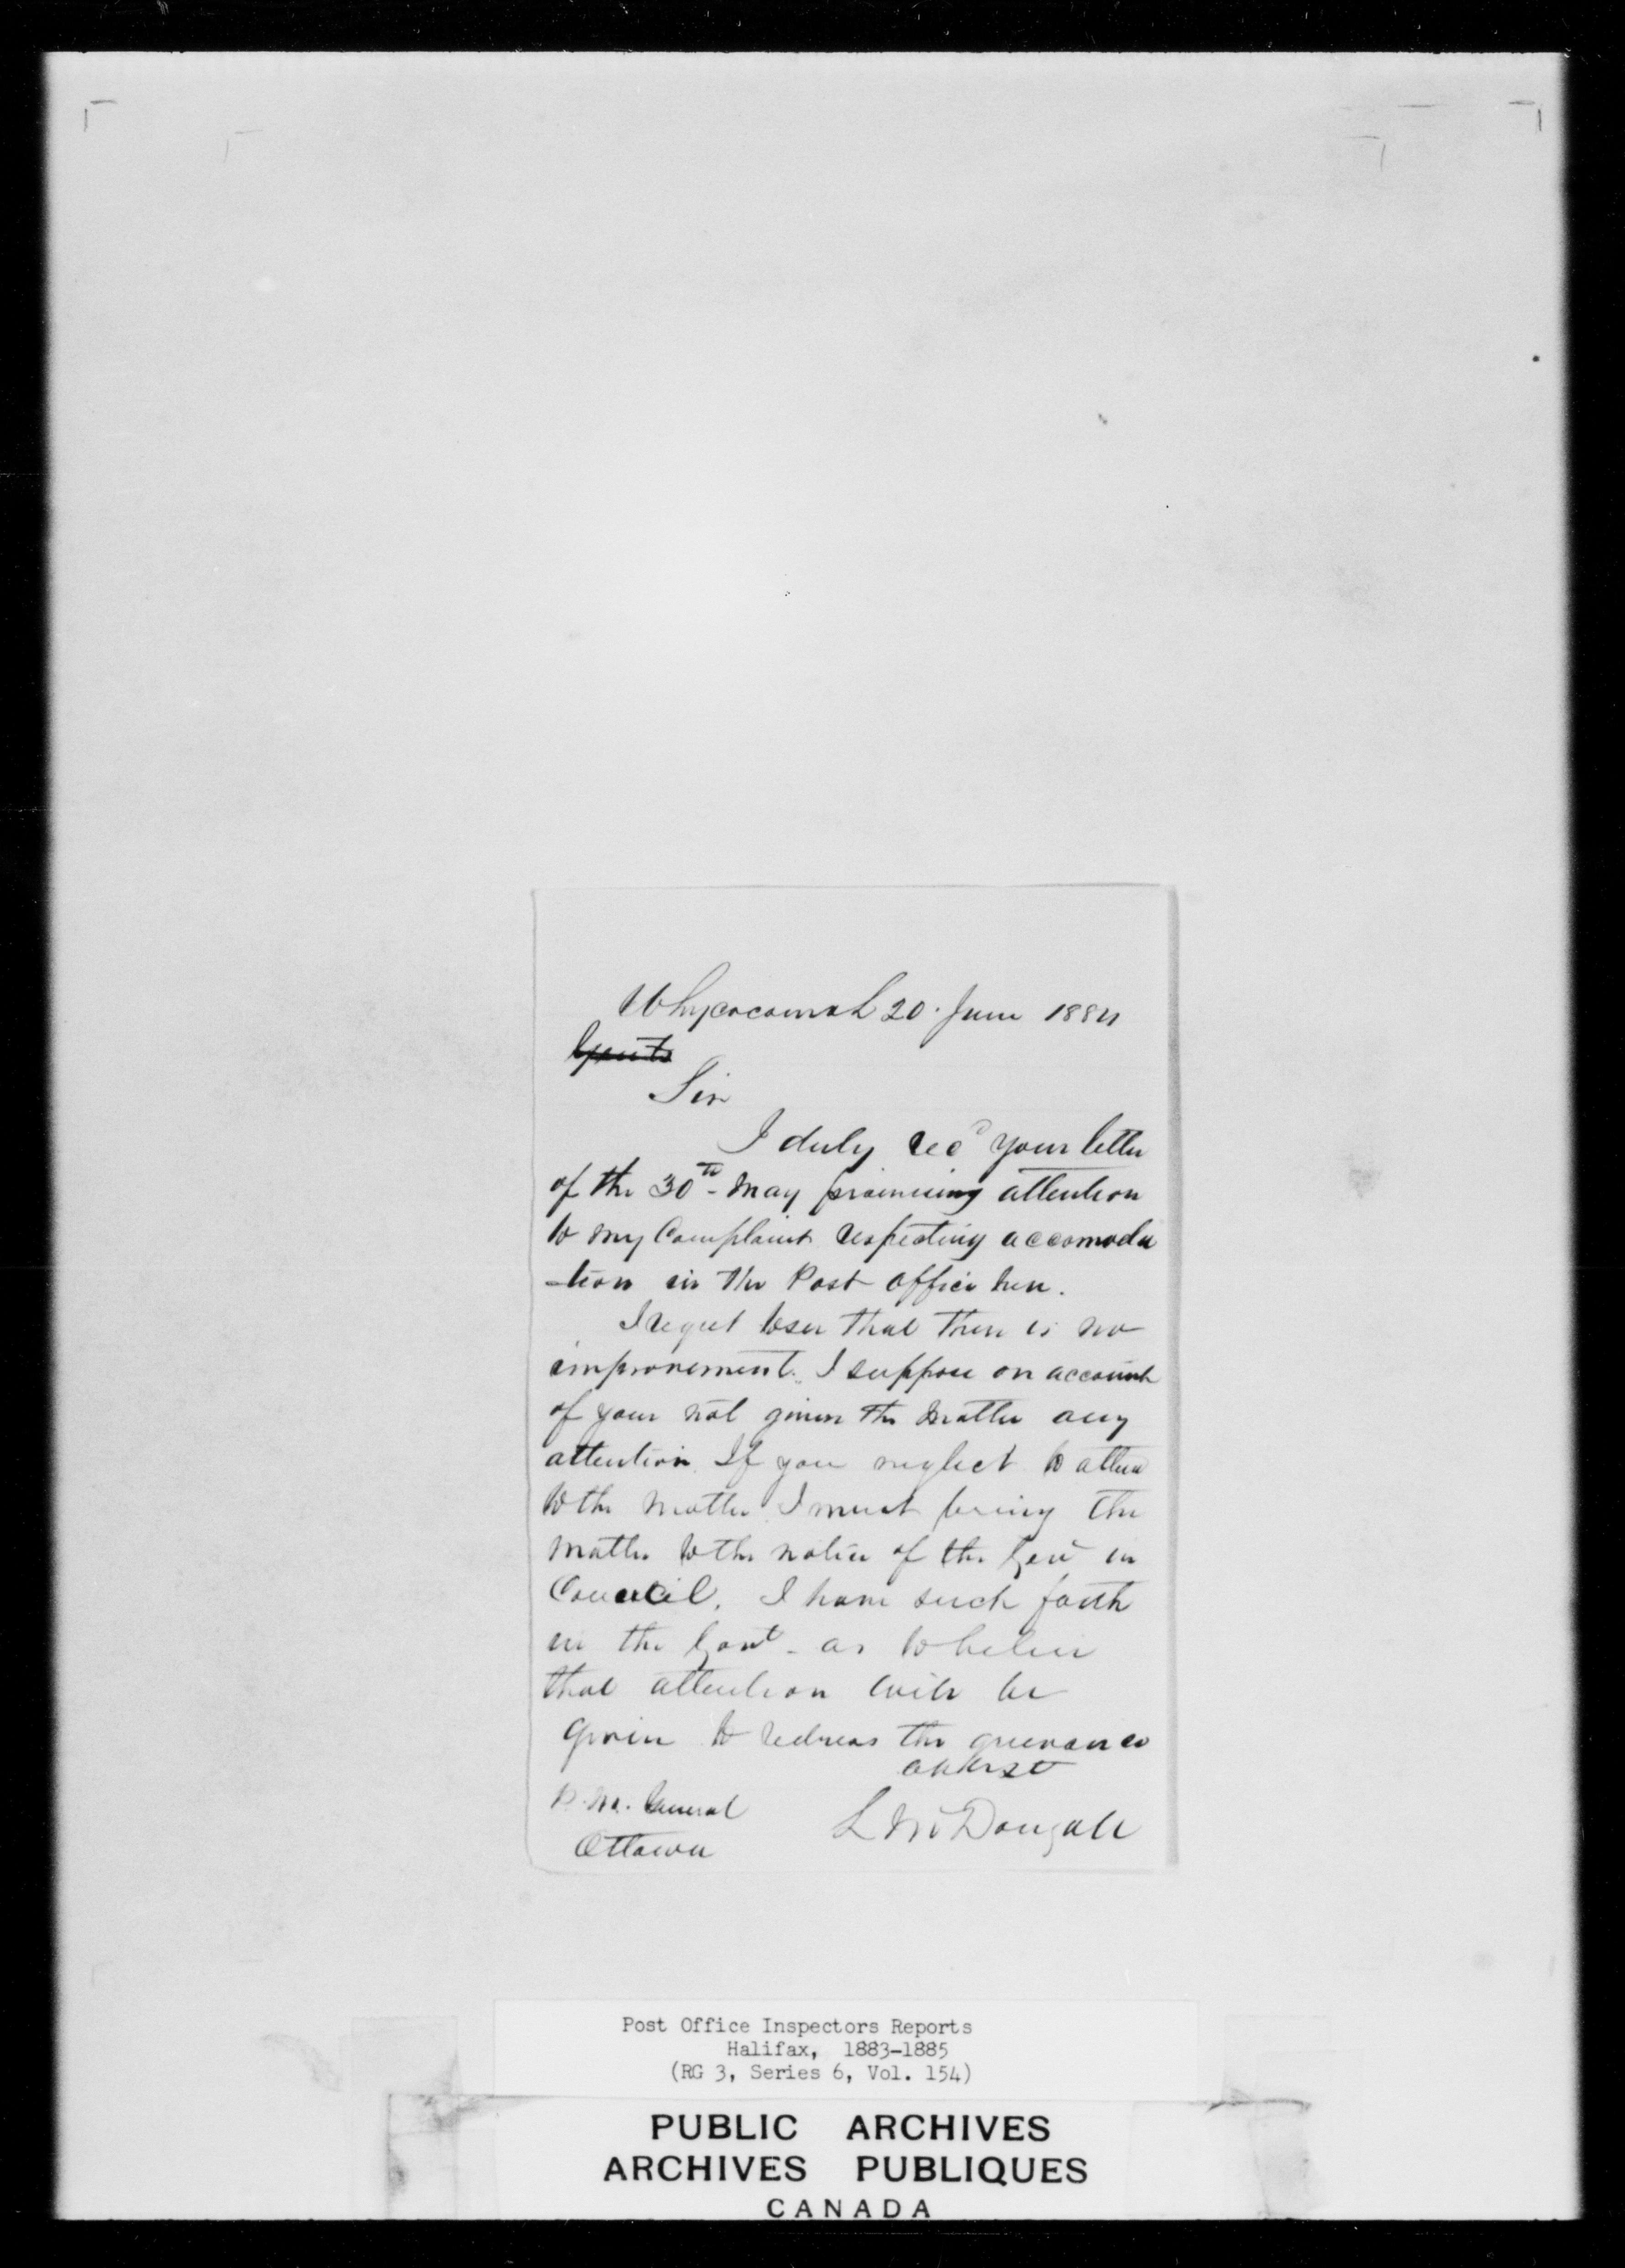 Whycocomah 20. June 1884
Gents
Sir
I duly recd your letter
of the 30th - May promising attention
to my Complaint respecting accomoda
-tion in the Post office here.
I regret to see that there is no
improvement. I suppose on account
of your not given the matter any
attention. If you neglect to attend
to the matter I must bring the
matter to the notice of the Gov in
Council. I have such faith
in the Govt - as to believe
that attention will be
given to redress the grievance
at first
P. M. General
L McDougall
Ottawa
Post Office Inspectors Reports
Halifax, 1883-1885
(RG 3, Series 6, Vol. 154)
PUBLIC ARCHIVES
ARCHIVES PUBLIQUES
CANADA